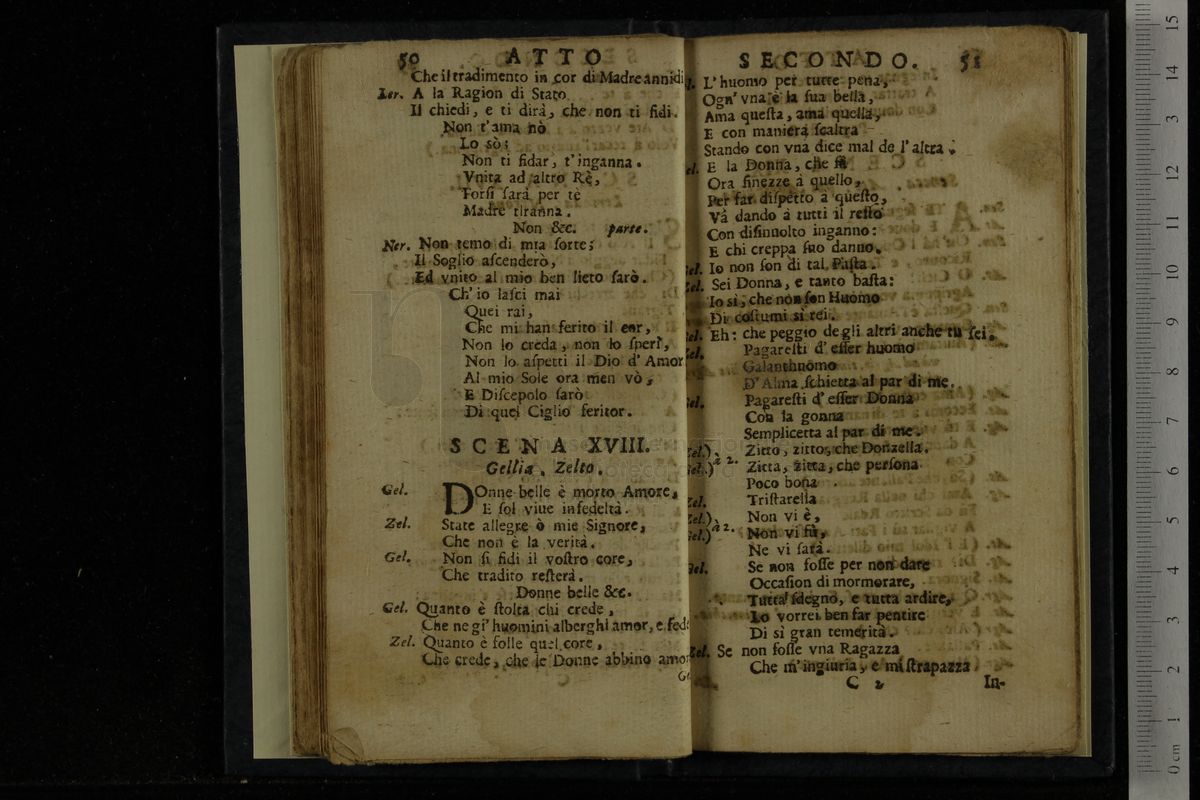 50 ATTO
Che il tradimento in cor di Madre annidi
Zer. A la Ragion di Stato
Il chiedi, e ti dirà, che non ti fidi.
Non t'ama nò
Lo sò;
Non ti fidar, t'inganna.
Vnita ad altro Rè,
Forsi sarà per tè
Madre tiranna.
Non &c. parte.
Ner. Non temo di mia sorte;
Il Soglio ascenderò,
Ed vnito al mio ben lieto sarò.
Ch'io lasci mai
Quei rai,
Che mi han ferito il cor,
Non lo creda, non lo speri,
Non lo aspetti il Dio d'Amor
Al mio Sole ora men vò,
E Discepolo sarò
Di quei Ciglio feritor.
SCENA XVIII.
Gellia, Zelto.
Gel. DOnne belle è morto Amore,
E sol viue infedeltà.
Zel. State allegre ò mie Signore,
Che non è la verità.
Gel. Non si fidi il vostro core,
Che tradito resterà.
Donne belle &c.
Gel. Quanto è stolta chi crede,
Che ne gl'huomini alberghi amor, e fede
Zel. Quanto è folle quel core,
Che crede, che le Donne abbino amor
Ge
SECONDO. 51
L'huomo per tutte pena,
Ogn'vna è la sua bella,
Ama questa, ama quella,
E con maniera scaltra
Stando con vna dice mal de l'altra.
el. E la Donna, che fà
Ora finezze à quello,
Per far dispetto à questo,
Và dando à tutti il resto
Con disinuolto inganno:
E chi creppa suo danno.
el. Io non son di tal Pasta.
el. Sei Donna, e tanto basta:
Io si, che non son Huomo
Di costumi sì rei.
el. Eh: che peggio degli altri anche tu sei.
el. Pagaresti d'esser huomo
Galanthuomo
D'Alma schietta al par di me.
el. Pagaresti d'esser Donna
Con la gonna
Semplicetta al par di me.
Zel.) Zitto, zitto, che Donzella.
Gel.) à 2. Zitta, zitta, che persona
Poco bona
el. Tristarella
Zel.) Non vi è,
Gel.) à 2. Non vi fù,
Ne vi sarà.
el. Se non fosse per non dare
Occasion di mormorare,
Tutta sdegno, e tutta ardire,
Io vorrei ben far pentire
Di sì gran temerità.
Zel. Se non fosse vna Ragazza
Che m'ingiuria, e mi strapazza
C 2 In-